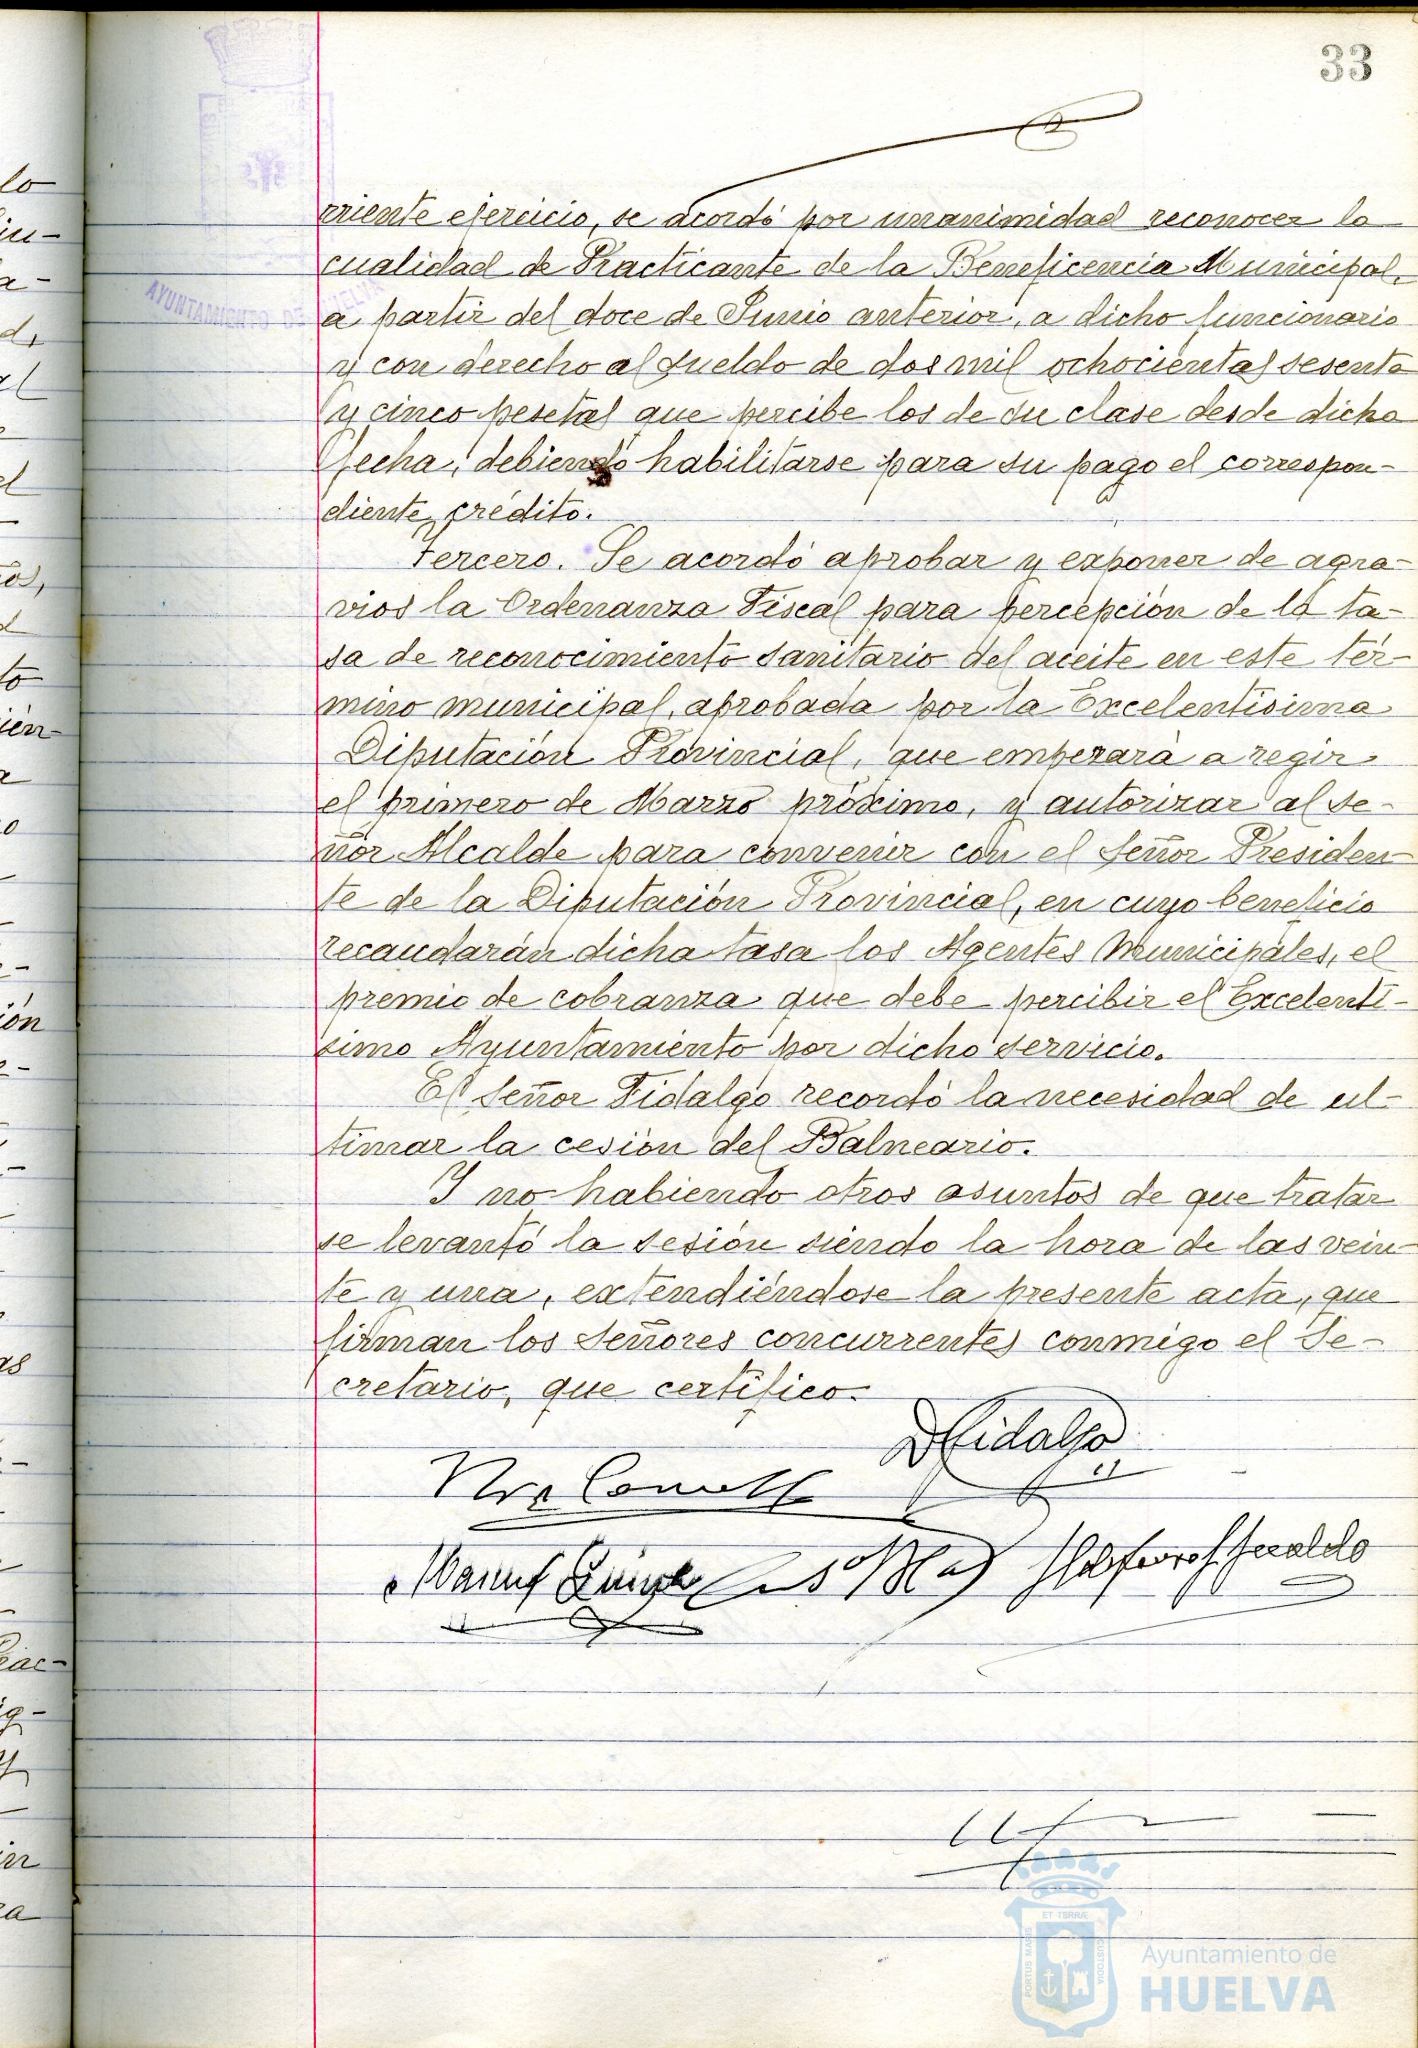 33
rriente ejercicio, se acordó por unanimidad reconocer la
cualidad de Practicante de la Beneficencia Municipal,
a partir del doce de Junio anterior, a dicho funcionario
y con derecho al sueldo de dos mil ochocientas sesenta
y cinco pesetas que percibe los de su clase desde dicha
fecha, debiendo habilitarse para su pago el correspon-
diente crédito.
Tercero. Se acordó aprobar y exponer de agra-
vios la Ordenanza Fiscal para percepción de la ta-
sa de reconocimiento sanitario del aceite en este tér-
mino municipal, aprobada por la Excelentisima
Diputación Provincial, que empezará a regir
el primero de Marzo próximo, y autorizar al se-
ñor Alcalde para convenir con el Señor Presiden-
te de la Diputación Provincial, en cuyo beneficio
recaudarán dicha tasa los Agentes Municipales, el
premio de cobranza que debe percibir el Excelentí-
simo Ayuntamiento por dicho servicio.
El Señor Fidalgo recordó la necesidad de ul-
timar la cesión del Balneario.
Y no habiendo otros asuntos de que tratar
se levantó la sesión siendo la hora de las vein-
te y una, extendiéndose la presente acta, que
firman los Señores concurrentes conmigo el Se-
cretario, que certifico.
D Fidalgo
AYUNTAMIENTO DE HUELVA
lo
el
to
ión
as
ET TERRÆ
PORTUS MARIS
CUSTODIA
Ayuntamiento de
HUELVA